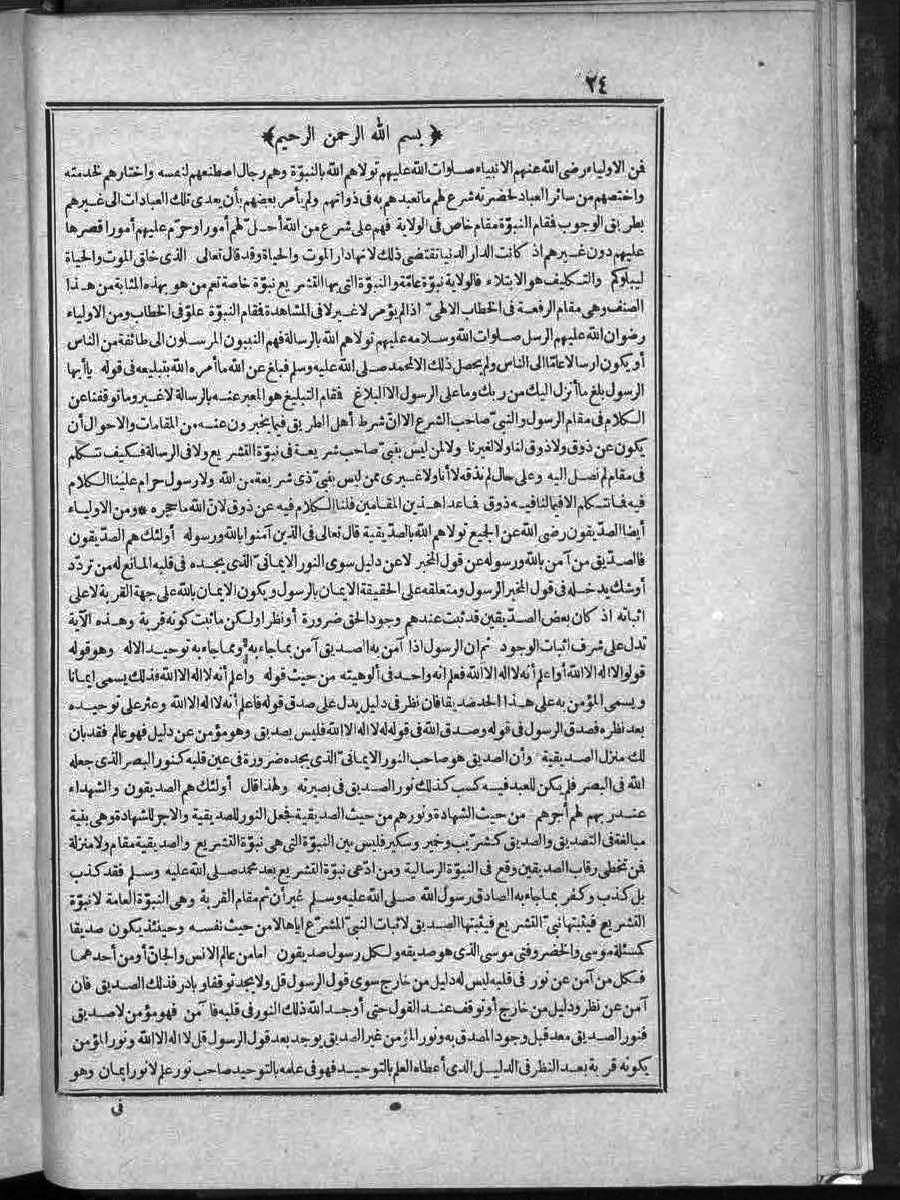 ٢٤
﴿ بسم الله الرحمن الرحيم ﴾
فمن الاولياء رضى الله عنهم الانبياء صلوات الله عليهم تولاهم الله بالنبوّة وهم رجال اصطنعهم لنفسه واختارهم لخدمته
واختصهم من سائر العباد لحضرته شرع لهم ما تعبدهم به فى ذواتهم ولم يأمر بعضهم بأن يعدى تلك العبادات الى غيرهم
بطريق الوجوب فمقام النبوّة مقام خاص فى الولاية فهم على شرع من الله أحل لهم أمورا وحرّم عليهم أمورا قصرها
عليهم دون غيرهم اذ كانت الدار الدنيا تقتضى ذلك لانها دار الموت والحياة وقد قال تعالى الذى خلق الموت والحياة
ليبلوكم والتكليف هو الابتلاء فالولاية نبوّة عامّة والنبوّة التى بها التشريع نبوّة خاصة تعم من هو بهذه المثابة من هذا
الصنف وهى مقام الرفعة فى الخطاب الالهىّ اذا لم يؤمر لا غير لا فى المشاهدة فمقام النبوّة علوّ فى الخطاب ومن الاولياء
رضوان الله عليهم الرسل صلوات الله وسلامه عليهم تولاهم الله بالرسالة فهم النبيون المرسلون الى طائفة من الناس
أو يكون ارسالا عامّا الى الناس ولم يحصل ذلك الا لمحمد صلى الله عليه وسلم فبلغ عن الله ما أمره الله بتبليغه فى قوله يا أيها
الرسول بلغ ما أنزل اليك من ربك وما على الرسول الا البلاغ فمقام التبليغ هو المعبر عنه بالرسالة لا غير وما توقفنا عن
الكلام فى مقام الرسول والنبىّ صاحب الشرع الا انّ شرط أهل الطريق فيما يخبرون عنه من المقامات والاحوال أن
يكون عن ذوق ولا ذوق لنا ولا لغيرنا ولا لمن ليس بنبىّ صاحب شريعة فى نبوّة التشريع ولا فى الرسالة فكيف نتكلم
فى مقام لم نصل اليه وعلى حال لم نذقه لا أنا ولا غيرى ممن ليس بنبىّ ذى شريعة من الله ولا رسول حرام علينا الكلام
فيه فما نتكلم الا فيما لنا فيه ذوق فما عدا هذين المقامين فلنا الكلام فيه عن ذوق لان الله ما حجره * ومن الاولياء
أيضا الصدّيقون رضى الله عن الجميع تولاهم الله بالصدّيقية قال تعالى فى الذين آمنوا بالله ورسوله أولئك هم الصدّيقون
فالصدّيق من آمن بالله ورسوله عن قول المخبر لا عن دليل سوى النور الايمانىّ الذى يجده فى قلبه المانع له من تردّد
أو شك يدخله فى قول المخبر الرسول ومتعلقه على الحقيقة الايمان بالرسول ويكون الايمان بالله على جهة القربة لا على
اثباته اذ كان بعض الصدّيقين قد ثبت عندهم وجود الحق ضرورة أو نظرا ولكن ما ثبت كونه قربة وهذه الآية
تدل على شرف اثبات الوجود ثم ان الرسول اذا آمن به الصديق آمن بما جاء به ومما جاء به توحيد الاله وهو قوله
قولوا لا اله الا الله أو اعلم أنه لا اله الا الله فعلم انه واحد فى ألوهيته من حيث قوله واعلم أنه لا اله الا الله فذلك يسمى ايمانا
ويسمى المؤمن به على هذا الحد صديقا فان نظر فى دليل يدل على صدق قوله فاعلم أنه لا اله الا الله وعثر على توحيده
بعد نظره فصدق الرسول فى قوله وصدق الله فى قوله له لا اله الا الله فليس بصديق وهو مؤمن عن دليل فهو عالم فقد بان
لك منزل الصديقية وأن الصديق هو صاحب النور الايمانىّ الذى يجده ضرورة فى عين قلبه كنور البصر الذى جعله
الله فى البصر فلم يكن للعبد فيه كسب كذلك نور الصديق فى بصيرته ولهذا قال أولئك هم الصديقون والشهداء
عند ربهم لهم أجرهم من حيث الشهادة ونورهم من حيث الصديقية فجعل النور للصديقية والاجر للشهادة وهى بنية
مبالغة فى التصديق والصديق كشرّيب وخمير وسكير فليس بين النبوّة التى هى نبوّة التشريع والصديقية مقام ولا منزلة
فمن تخطى رقاب الصديقين وقع فى النبوّة الرسالية ومن ادّعى نبوّة التشريع بعد محمد صلى الله عليه وسلم فقد كذب
بل كذب وكفر بما جاء به الصادق رسول الله صلى الله عليه وسلم غير أن ثم مقام القربة وهى النبوّة العامة لا نبوّة
التشريع فيثبتها نبىّ التشريع فيثبتها الصديق لاثبات النبىّ المشرّع اياها لا من حيث نفسه وحينئذ يكون صديقا
كمسئلة موسى والخضر وفتى موسى الذى هو صديقه ولكل رسول صديقون اما من عالم الانس والجانّ أو من أحدهما
فكل من آمن عن نور فى قلبه ليس له دليل من خارج سوى قول الرسول قل ولا يجد توقفا وبادر فذلك الصديق فان
آمن عن نظر ودليل من خارج أو توقف عند القول حتى أوجد الله ذلك النور فى قلبه فآمن فهو مؤمن لا صديق
فنور الصديق معد قبل وجود المصدق به ونور المؤمن غير الصديق يوجد بعد قول الرسول قل لا اله الا الله ونور المؤمن
بكونه قربة بعد النظر فى الدليل الذى أعطاه العلم بالتوحيد فهو فى علمه بالتوحيد صاحب نور علم لا نور ايمان وهو
فى